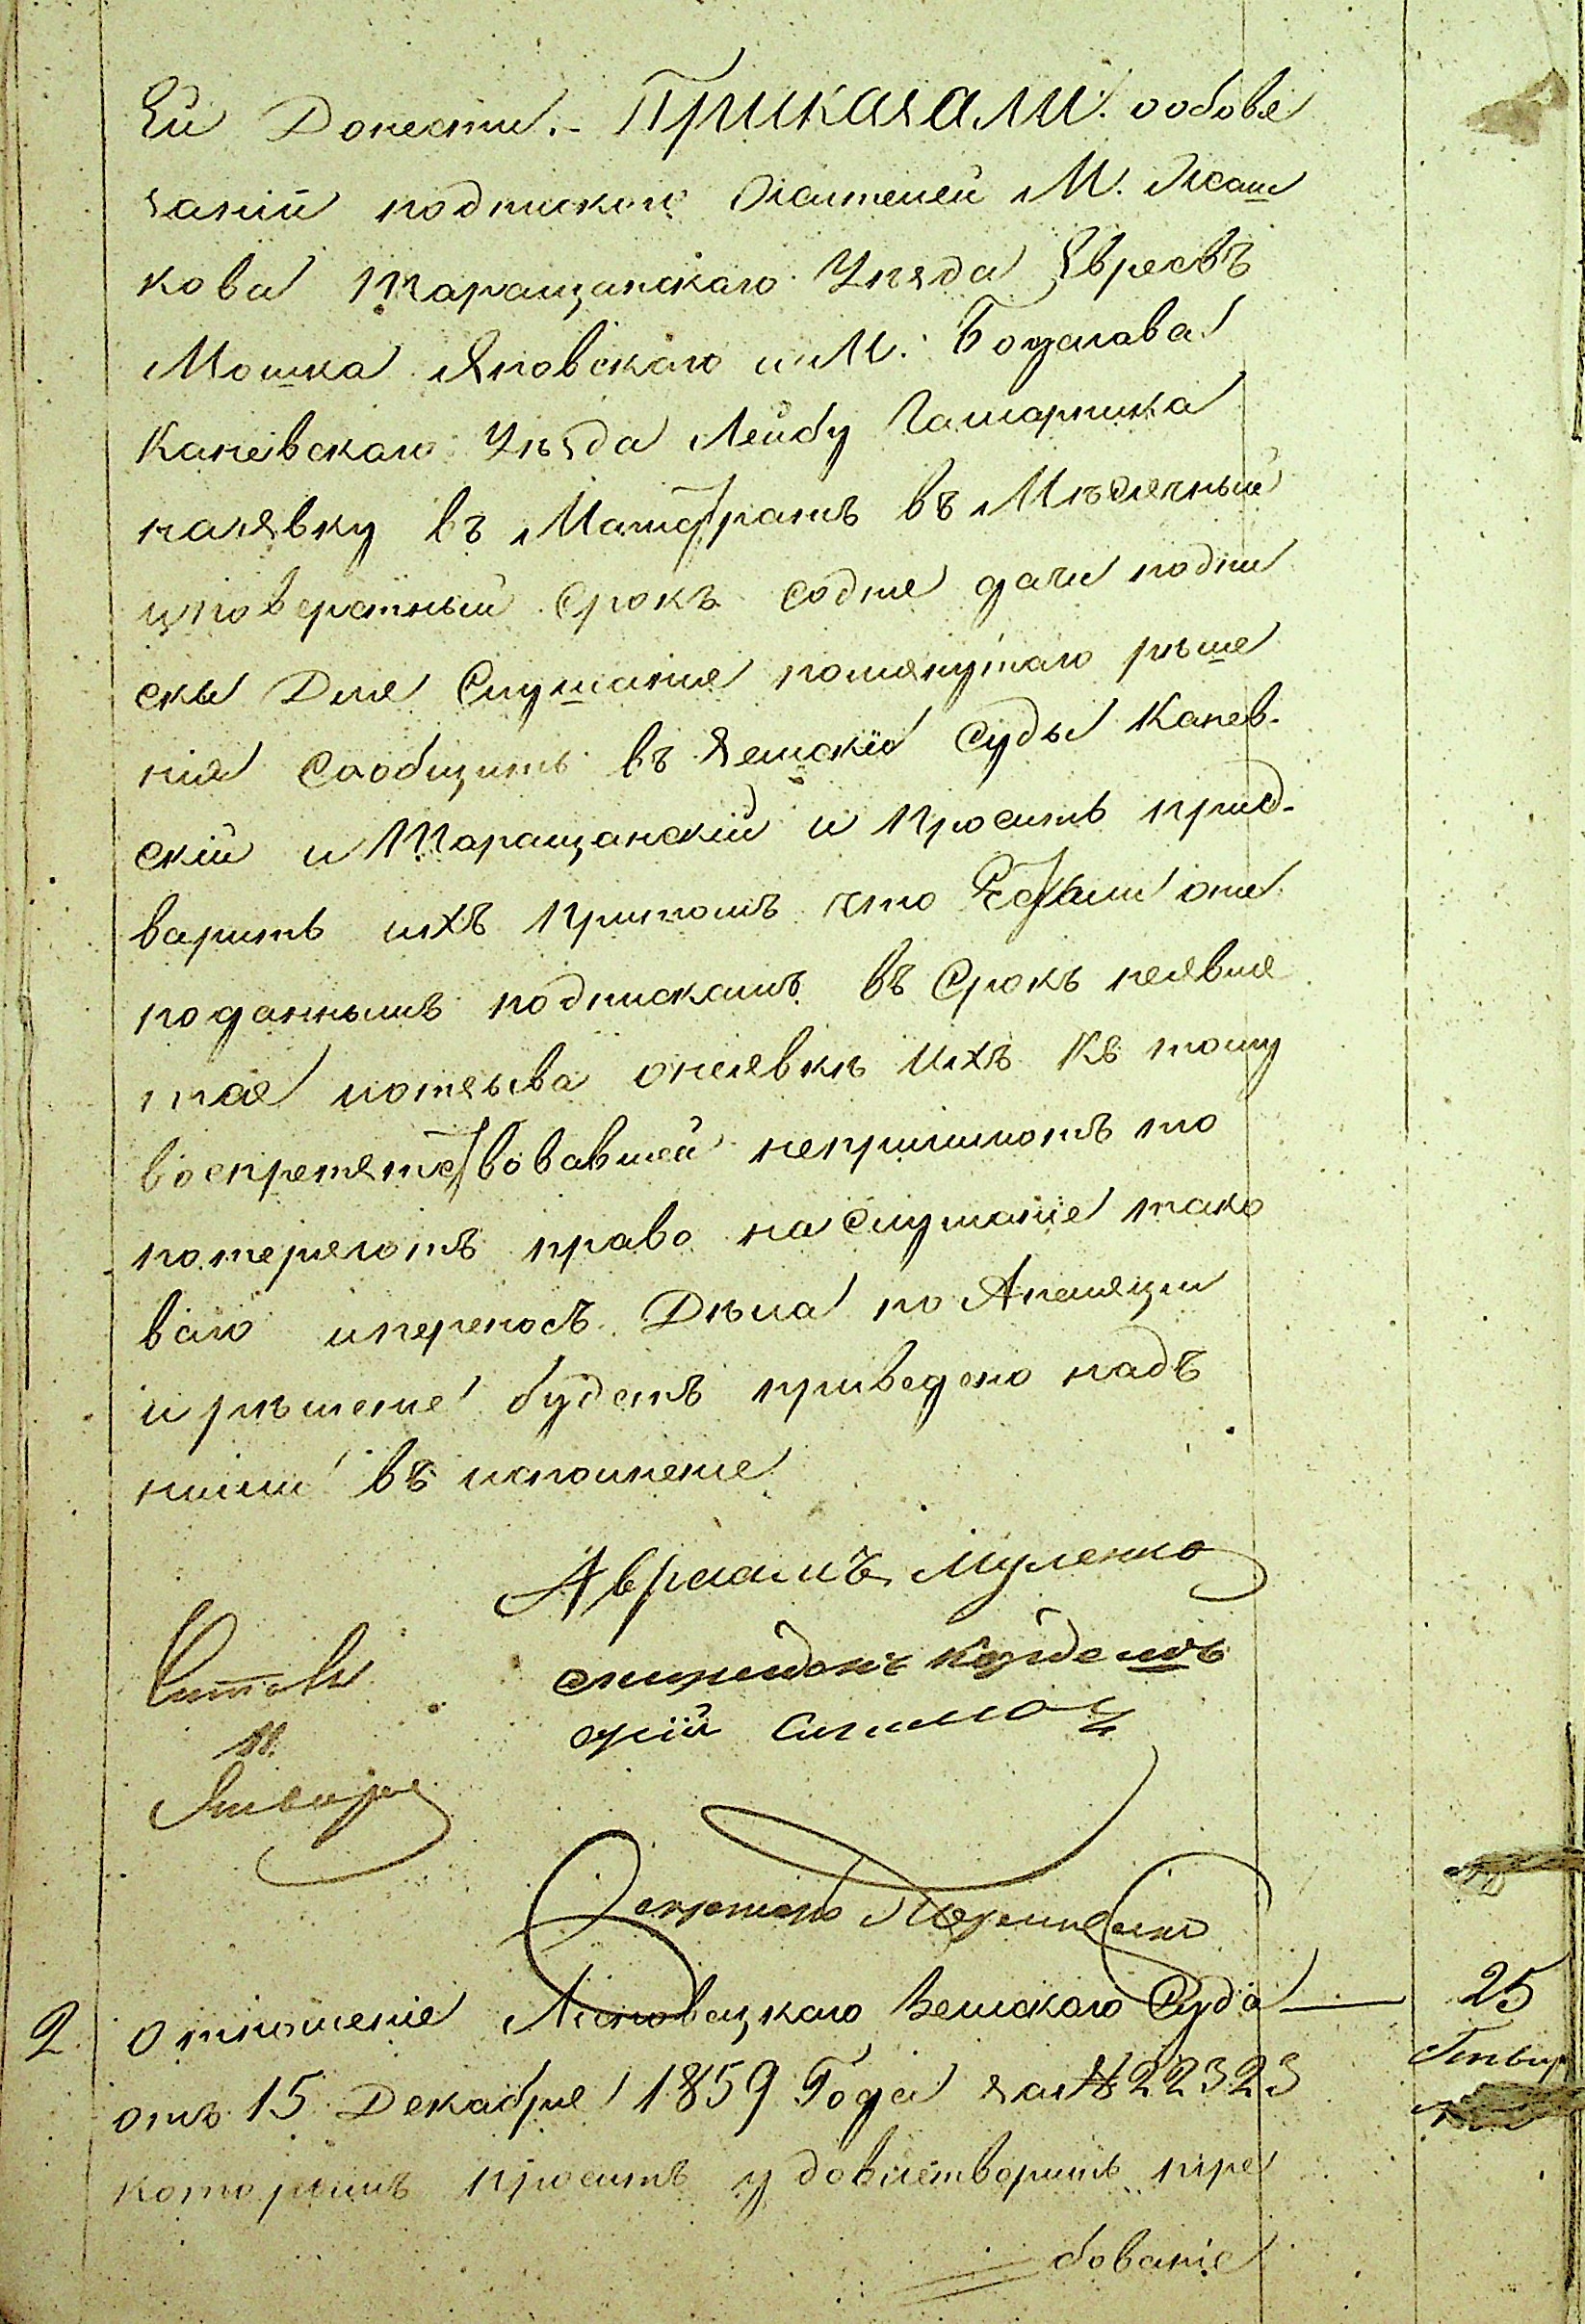 Ей Донести. - Приказали: о обовя
заніи подпискою жителей М. Жаш
кова Таращанскаго Уѣзда Евреевъ
Мошка Яновскаго и М. Богуслава
Каневскаго Уѣзда Лейбу Гамарника
на явку въ Магистратъ въ Мѣсячный
и поверстный срокъ со дня дачи подпи
ски Для Слушанія помянутаго рѣше
нія Сообщить въ Земскіе Суды Канев-
скій и Таращанскій и Просить пред-
варить ихъ притомъ что Если они
по даннымъ подпискамъ въ Срокъ неявят
тся и отзыва о неявкѣ ихъ къ тому
воспрепятствовавшей непришлютъ то
потеряютъ право на Слушаніе тако
ваго и переносъ Дѣла по Апеляціи
и рѣшеніе будетъ приведено надъ
ними въ исполненіе
Авраамъ
спиридонъ
Читалъ
11.
Января
Секретарь
2. Отношеніе Липовецкаго Земскаго Суда — 25
отъ 15 Декабря 1859 Года за № 22323
Генвар
которымъ проситъ удовлетворить тре
бованіе